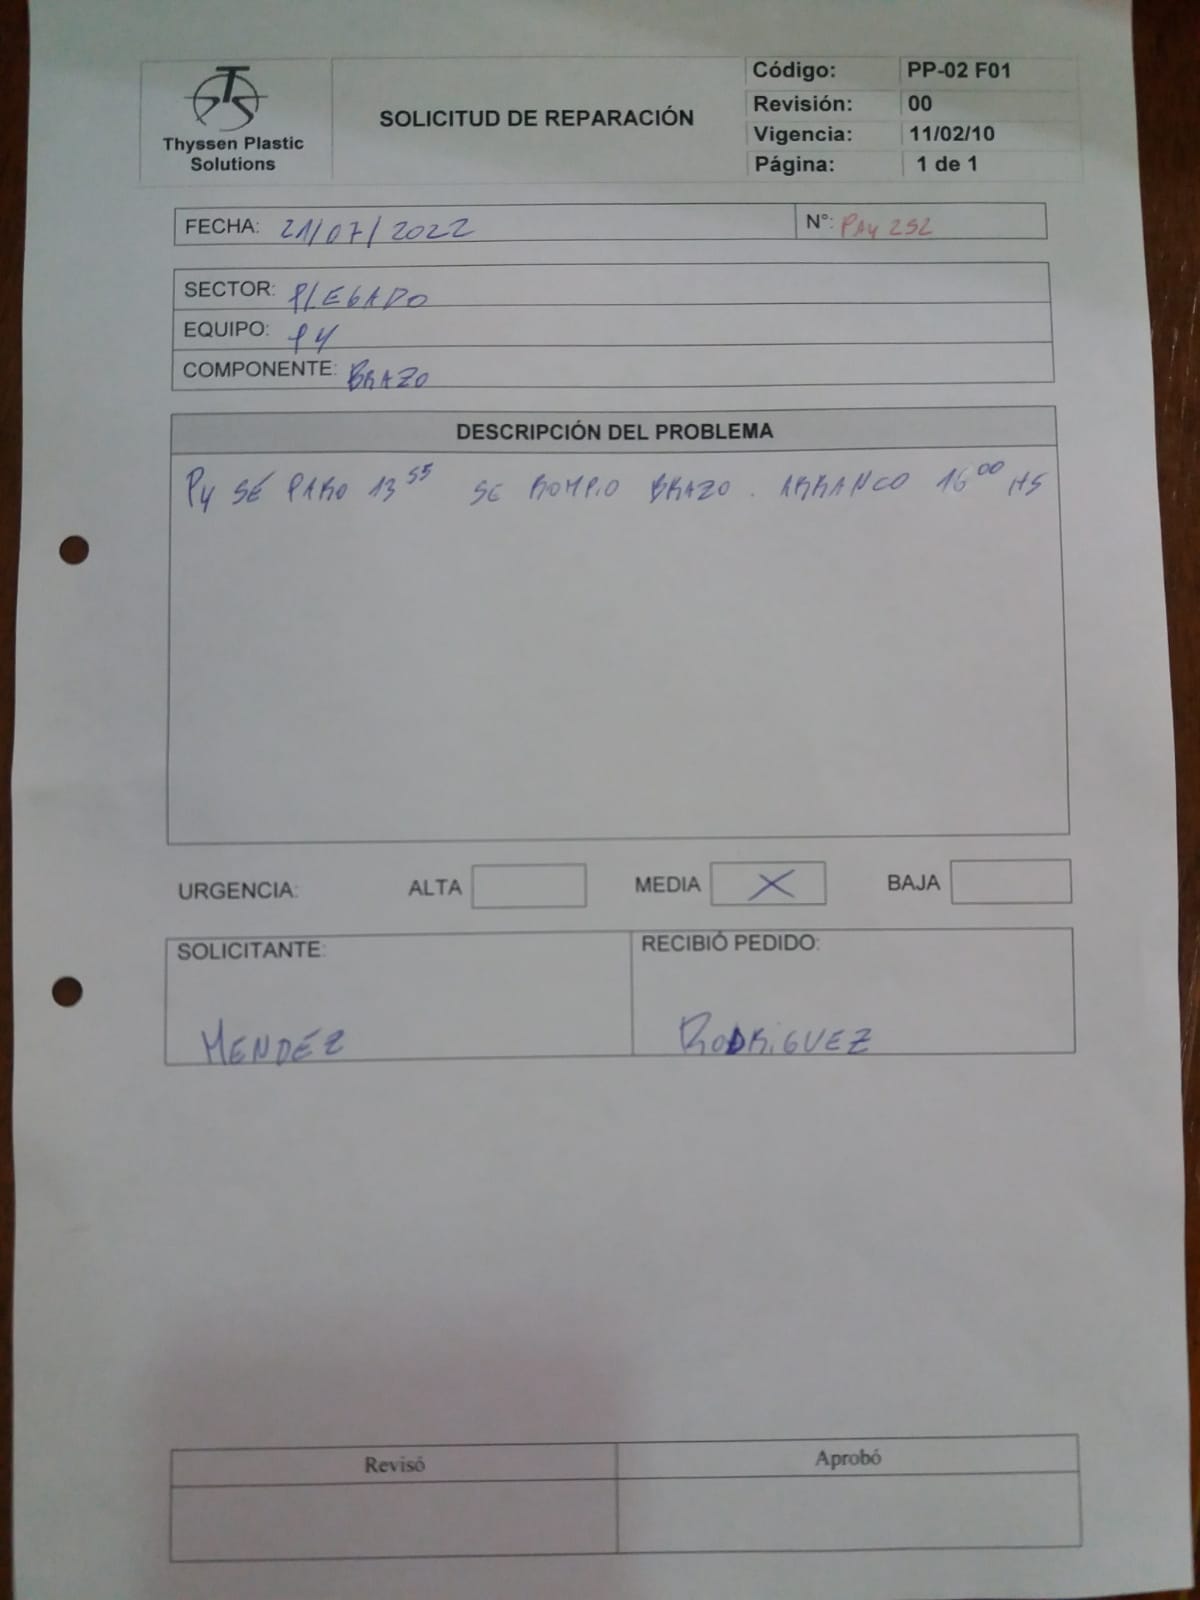 Thyssen Plastic
Solutions
SOLICITUD DE REPARACIÓN
Código: PP-02 F01
Revisión: 00
Vigencia: 11/02/10
Página: 1 de 1
FECHA: 21/07/2022 N°: PA4 252
SECTOR: PLEGADO
EQUIPO: P4
COMPONENTE: BRAZO
DESCRIPCIÓN DEL PROBLEMA
P4 SE PARO 13 55 SE ROMPIO BRAZO. ARRANCO 16 00 HS
URGENCIA: ALTA MEDIA X BAJA
SOLICITANTE: RECIBIÓ PEDIDO:
MENDEZ RODRIGUEZ
Revisó Aprobó